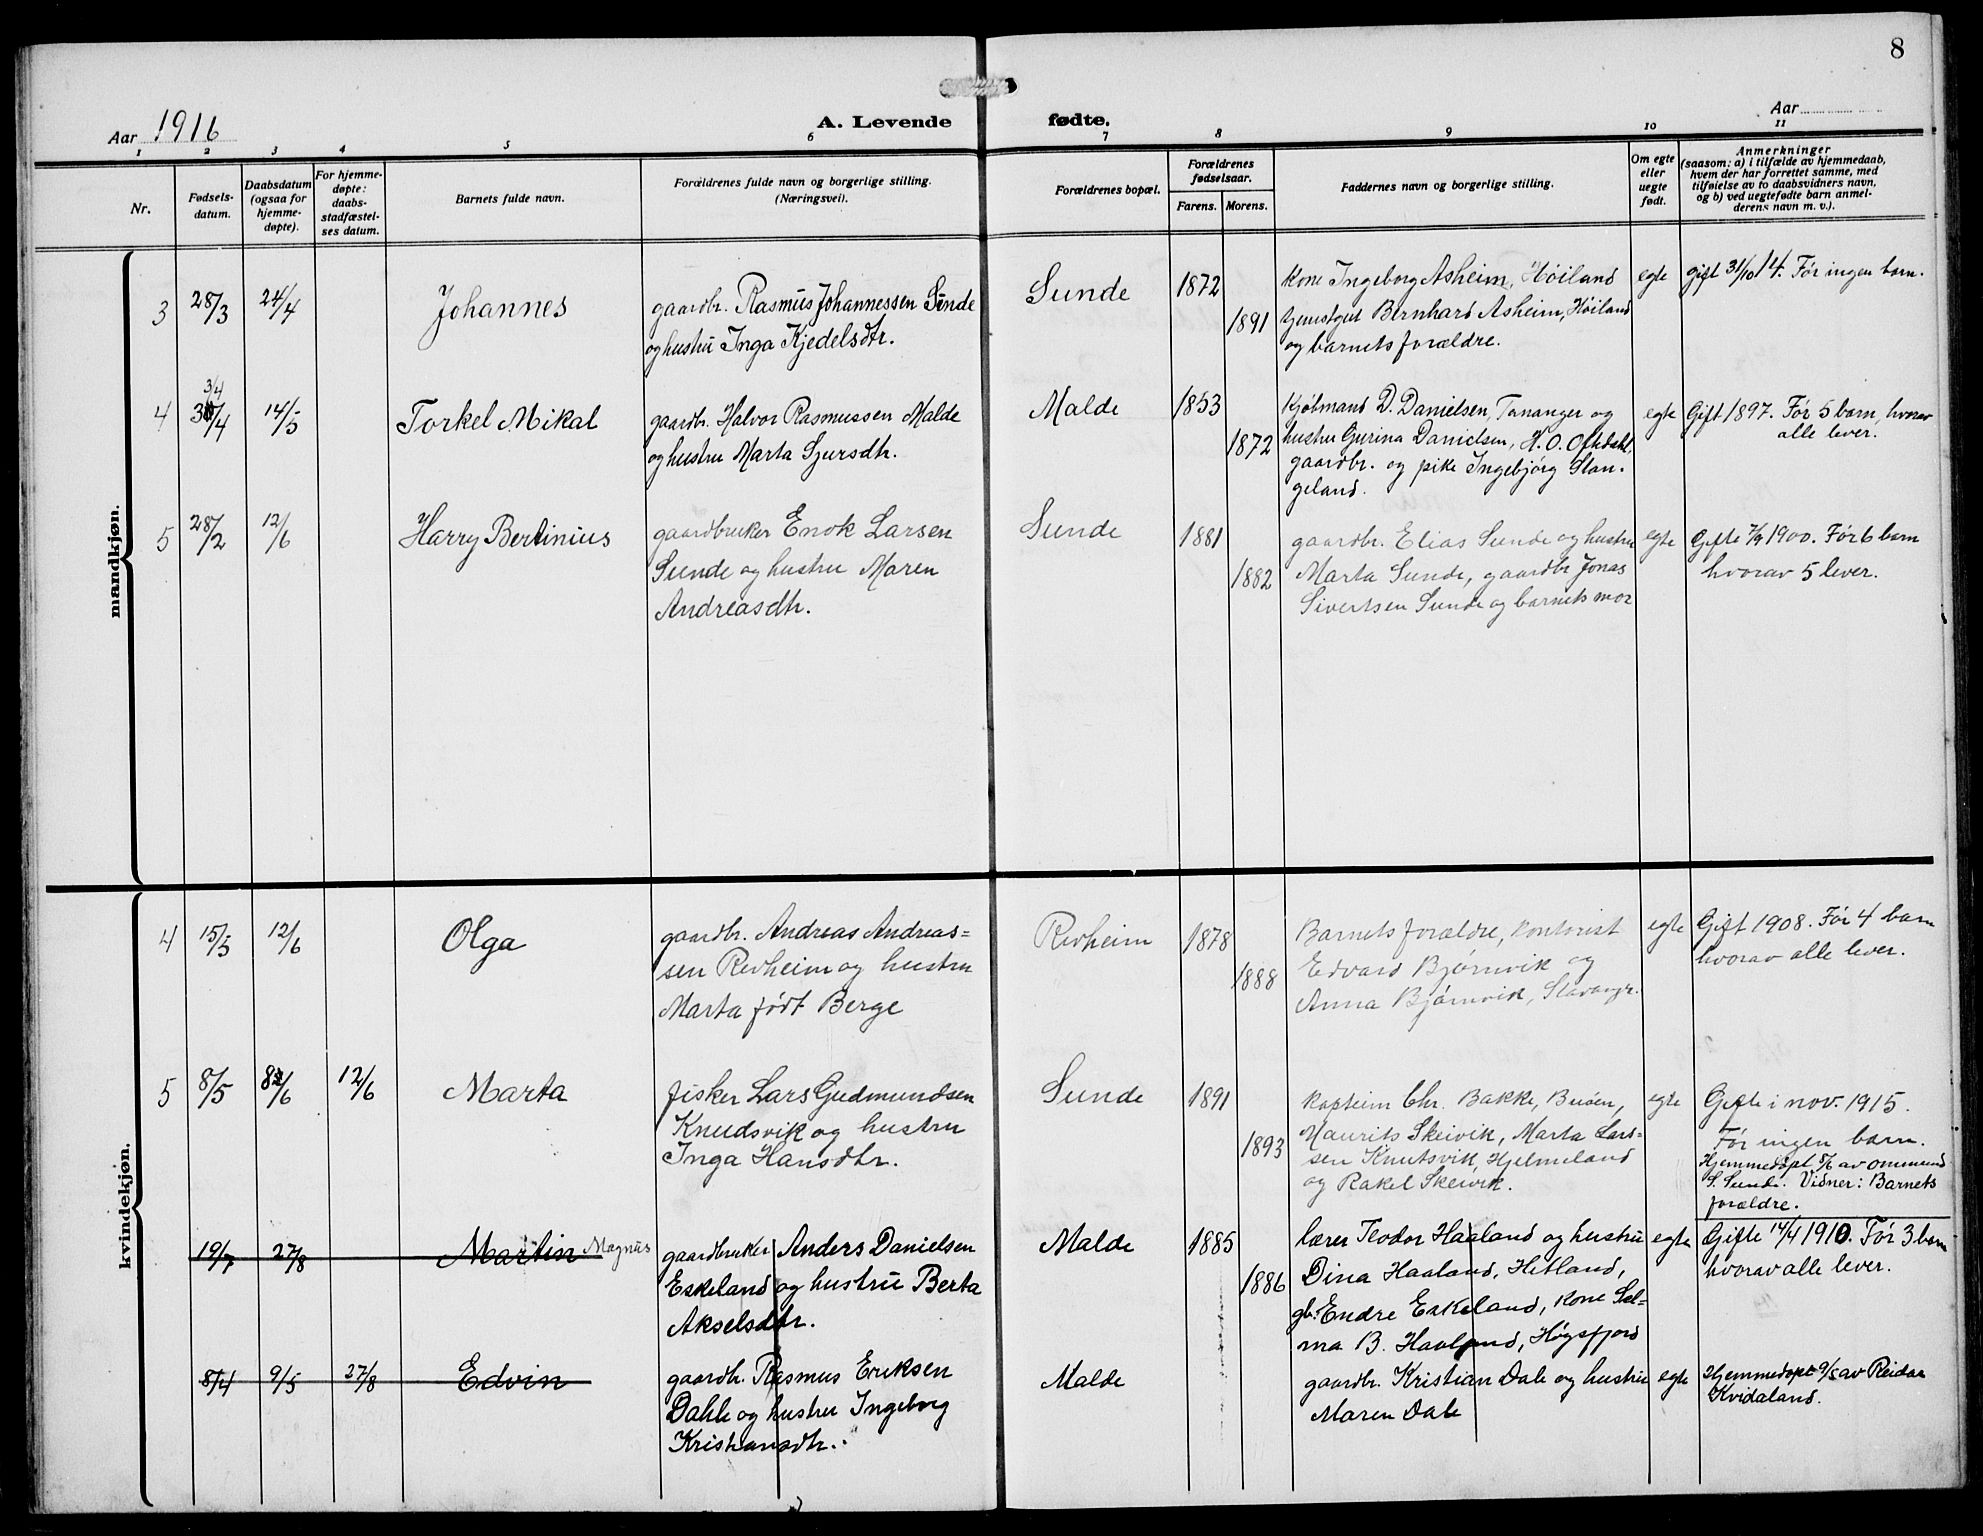 8
Aar 1916
A. Levende fødte.
Aar
1 2 3 4 5 6 7 8 9 10 11
Nr.
Fødsels-
datum.
Daabsdatum
(ogsaa for
hjemme-
døpte).
For hjemme-
døpte:
daabs-
stadfæstel-
ses datum.
Barnets fulde navn.
Forældrenes fulde navn og borgerlige stilling.
(Næringsvei).
Forældrenes bopæl.
Forældrenes
fødselsaar.
Farens. Morens.
Faddernes navn og borgerlige stilling.
Om egte
eller
uegte
født.
Anmerkninger
(saasom: a) i tilfælde av hjemmedaab,
hvem der har forrettet samme, med
tilføielse av to daabsvidners navn,
og b) ved uegtefødte barn anmel-
derens navn m. v.).
mandkjøn.
3 28/3 24/4 Johannes
gaardbr. Rasmus Johannessen Sunde
og hustru Inga Kjedelsdtr.
Sunde 1872 1891
Kone Ingeborg Asheim, Høiland
tjenstgut Bernhard Asheim, Høiland
og barnets forældre.
egte
gift 31/10 14. Før ingen barn.
3/4
4 14/5 Torkel Mikal
gaardbr. Halvor Rasmussen Malde
og hustru Marta Sjursdtr.
Malde 1853 1872
Kjøbmand D. Danielsen, Tananger og
hustru Gurina Danielsen, H. O. Oftedahl,
gaardbr. og pike Ingebjørg Stan-
geland.
egte
Gift 1897. Før 5 barn, hvorav
alle lever.
5 28/2 12/6 Harry Bertinius
gaardbruker Enok Larsen
Sunde og hustru Maren
Andreasdtr.
Sunde 1881 1882
gaardbr. Elias Sunde og hustru
Marta Sunde, gaardbr Jonas
Sivertsen Sunde og barnets mor
egte
Gifte 7/9 1900. Før 6 barn
hvorav 5 lever.
kvindekjøn.
4 15/5 12/6 Olga
gaardbr. Andreas Andreas=
sen Revheim og hustru
Marta født Berge
Revheim 1878 1888
Barnets forældre, kontorist
Edvard Bjørnvik og
Anna Bjørnvik, Stavangr.
egte
Gift 1908. Før 4 barn
hvorav alle lever.
5 8/5 8/6 12/6 Marta
fisker Lars Gudmundsen
Knudsvik og hustru
Inga Hansdtr.
Sunde 1891 1893
Kaptein Chr. Bakke, Buøen,
Maurits Skeivik, Marta Lars=
sen Knutsvik, Hjelmeland
og Rakel Skeivik.
egte
Gifte i nov. 1915.
Før ingen barn.
Hjemmedøpt 8/6 av Ommund
S. Sunde. Vidner: Barnets
forældre.
19/7 27/8 Martin Magnus
gaardbruker Anders Danielsen
Eskeland og hustru Berta
Akselsdtr.
Malde 1885 1886
lærer Teodor Haaland og hustru
Dina Haaland, Hetland,
gb. Endre Eskeland, kone Sel=
ma B. Haaland, Høgsfjord
egte
Gifte 14/4 1910. Før 3 barn
hvorav alle lever.
8/4 9/5 27/8 Edvin
gaardbr. Rasmus Eriksen
Dahle og hustru Ingeborg
Kristiansdtr.
Malde
gaardbr. Kristian Dale og hustru
Maren Dale
egte
Hjemmedøpt 9/5 av Reidar
Kvidaland.